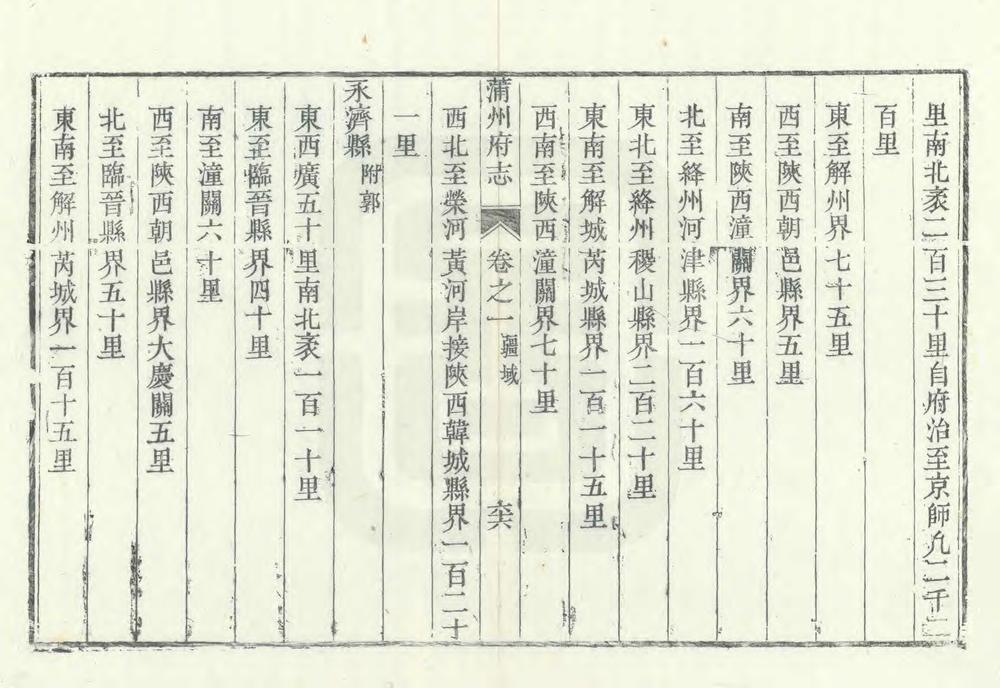 里南北袤二百三十里自府治至京師凡二千二
百里
東至解州界七十五里
西至陝西朝邑縣界五里
南至陝西潼關界六十里
北至絳州河津縣界一百六十里
東北至絳州稷山縣界二百二十里
東南至解城芮城縣界一百一十五里
西南至陝西潼關界七十里
蒲州府志 卷之一 疆域 六
西北至榮河黃河岸接陝西韓城縣界一百二十
一里
永濟縣 附郭
東西廣五十里南北袤一百一十里
東至臨晉縣界四十里
南至潼關六十里
西至陝西朝邑縣界大慶關五里
北至臨晉縣界五十里
東南至解州芮城界一百十五里